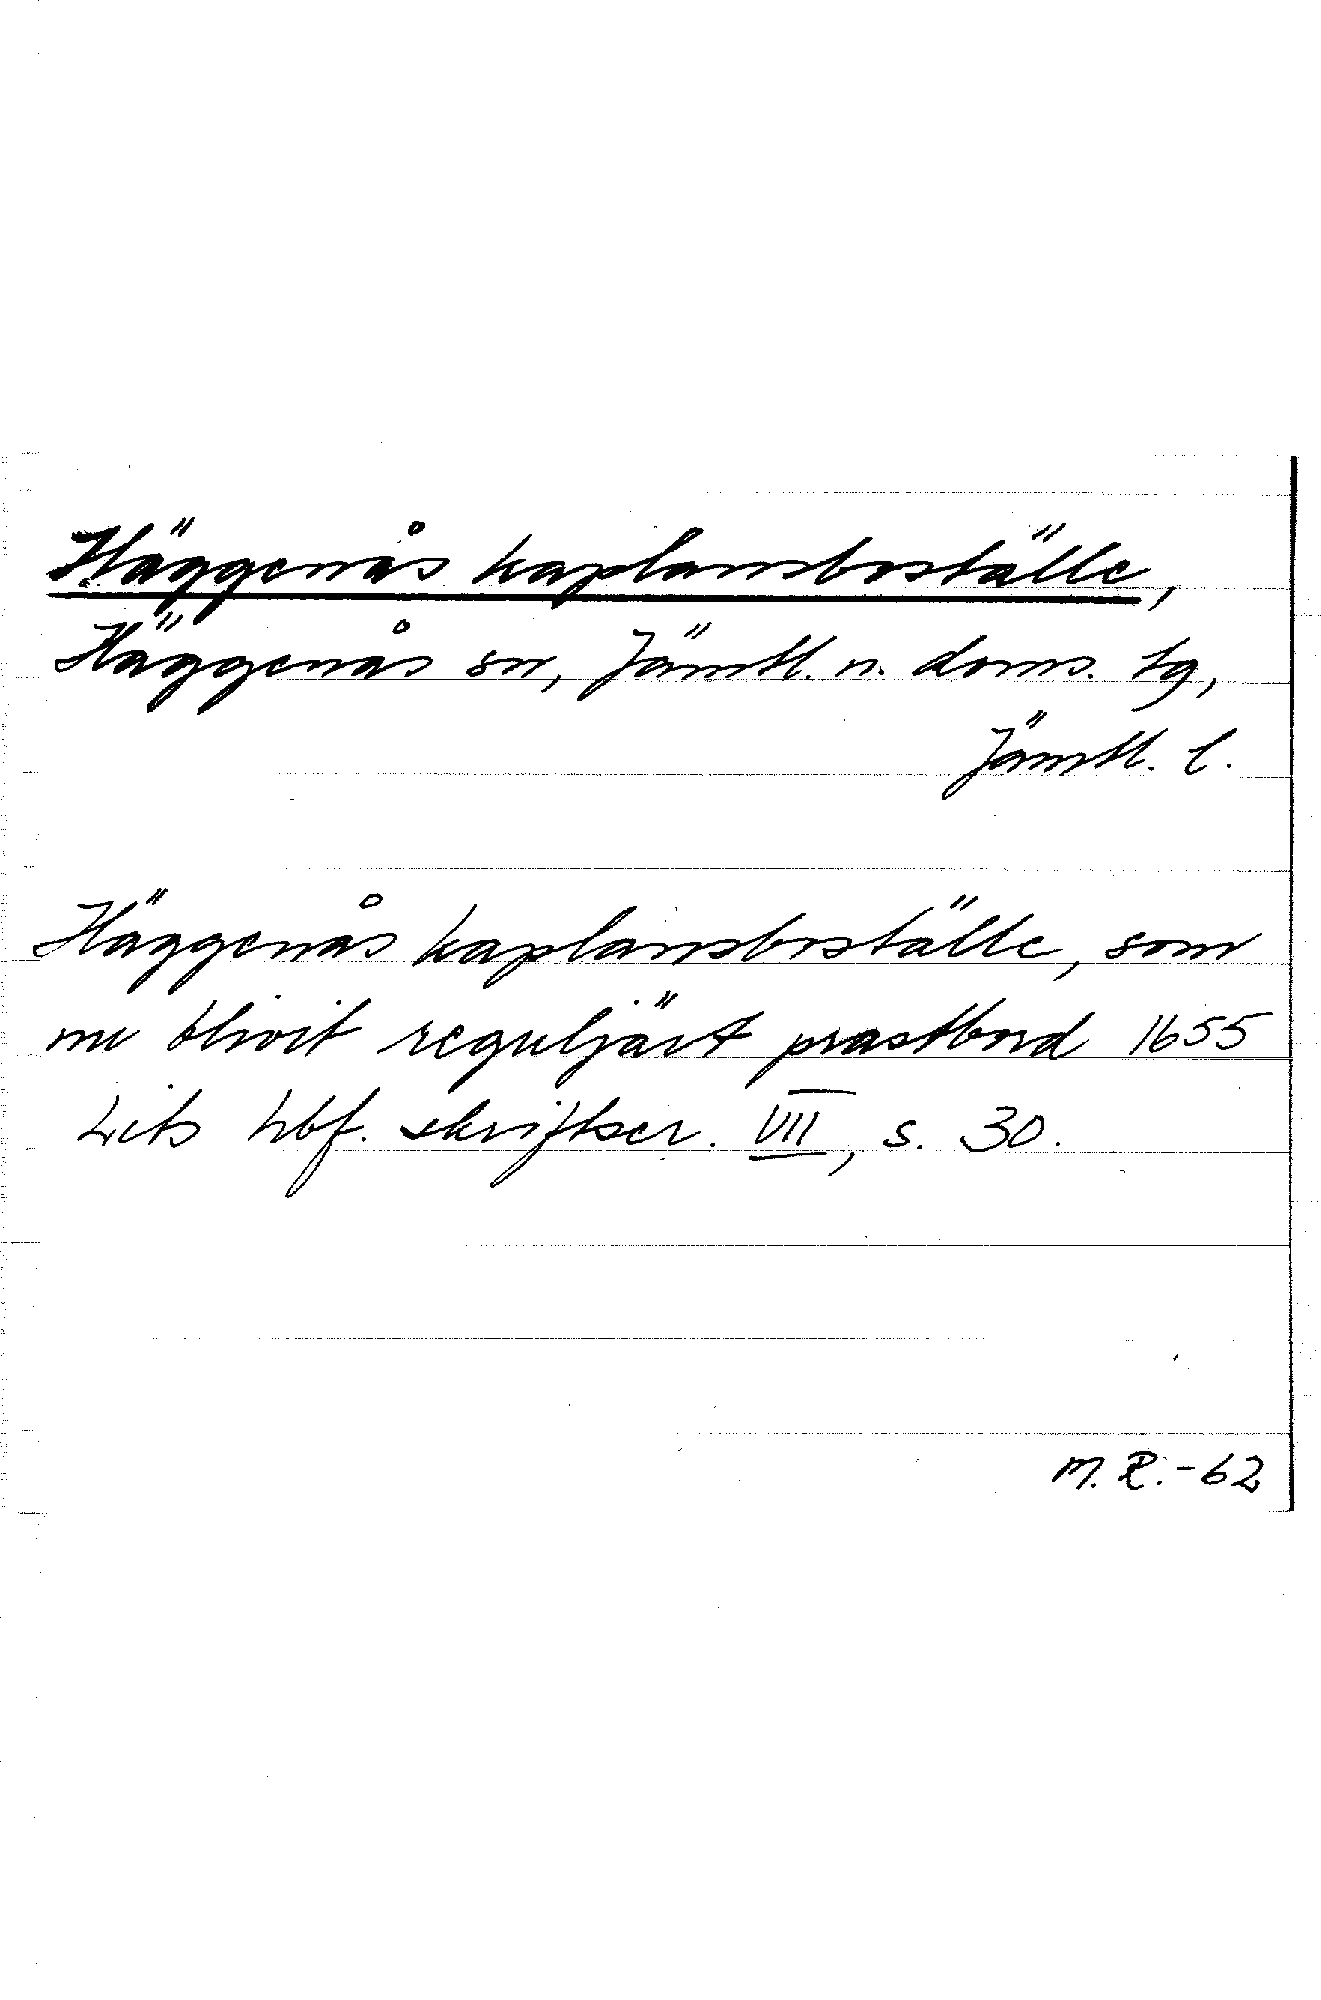 Häggenås kaplansboställe,
Häggenås sn, Jämtl. n. doms. tg,
Jämtl. l.
Häggenås kaplansboställe, som
nu blivit reguljärt prastbord 1655
Lits hbf. skriftser. VII, s. 30.
M.R.-62